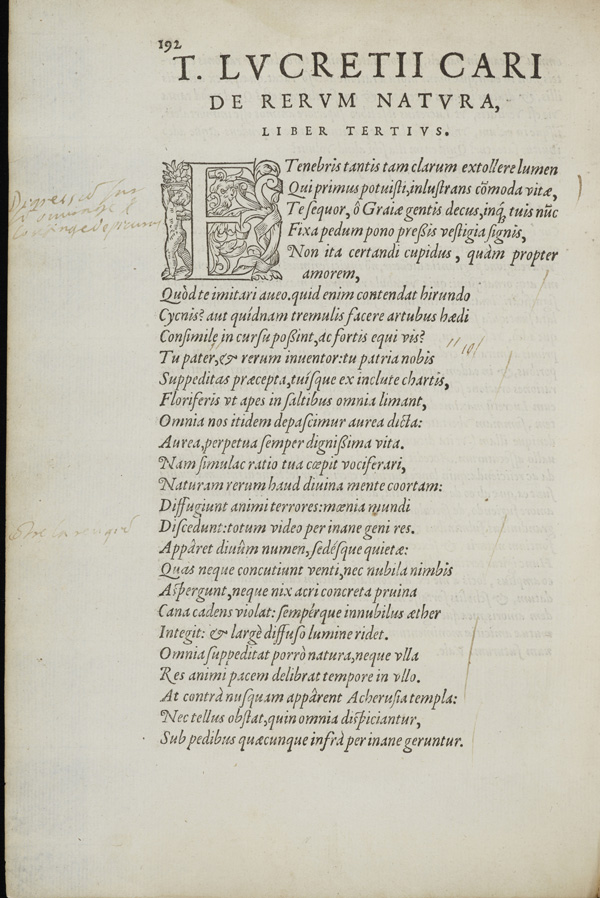 192
T. LVCRETII CARI
DE RERVM NATVRA,
LIBER TERTIVS.
E Tenebris tantis tam clarum extollere lumen
Qui primus potuisti, inlustrans cõmoda vitæ,
Te sequor, ô Graiæ gentis decus, inq; tuis nũc
Fixa pedum pono preßis vestigia signis,
Non ita certandi cupidus, quàm propter
amorem,
Quòd te imitari aueo. quid enim contendat hirundo
Cycnis? aut quidnam tremulis facere artubus hædi
Consimile in cursu poßint, ac fortis equi vis?
Tu pater, & rerum inuentor: tu patria nobis
Suppeditas præcepta, tuísque ex inclute chartis,
Floriferis vt apes in saltibus omnia limant,
Omnia nos itidem depascimur aurea dicta:
Aurea, perpetua semper dignißima vita.
Nam simulac ratio tua cœpit vociferari,
Naturam rerum haud diuina mente coortam:
Diffugiunt animi terrores: mœnia mundi
Discedunt: totum video per inane geni res.
Appâret diuûm numen, sedésque quietæ:
Quas neque concutiunt venti, nec nubila nimbis
Aspergunt, neque nix acri concreta pruina
Cana cadens violat: sempérque innubilus æther
Integit: & largè diffuso lumine ridet.
Omnia suppeditat porrò natura, neque vlla
Res animi pacem delibrat tempore in vllo.
At contrà nusquam appârent Acherusia templa:
Nec tellus obstat, quin omnia dispiciantur,
Sub pedibus quæcunque infrà per inane geruntur.